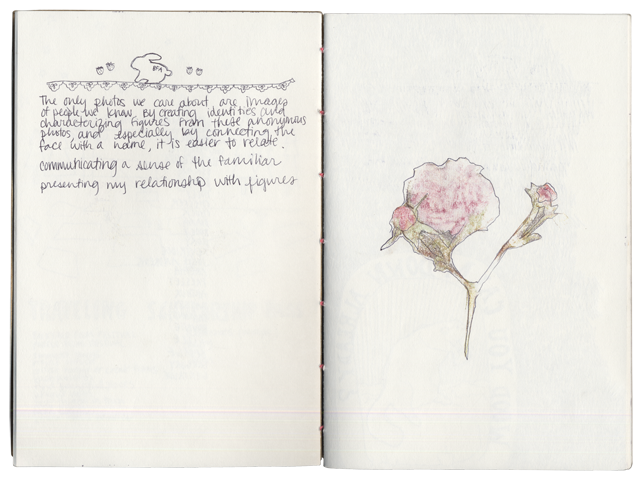 The only photos we care about are images
of people we know. By creating identities and
characterizing figures from these anonymous
photos, and especially by connecting the
face with a name, it is easier to relate.
communicating a sense of the familiar
presenting my relationship with figures